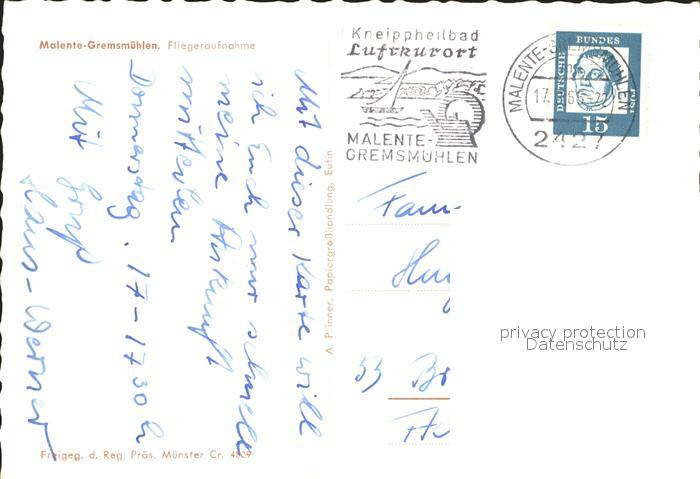 Malente-Gremsmühlen. Fliegeraufnahme
Mit dieser Karte will
ich Euch nur schnell
meine Ankunft
mitteilen
Donnerstag, 17-17.30 h
Mit Gruß
Hans-Werner
Freigeg. d. Reg. Präs. Münster Cr. 4809
A. Plinner, Papiergroßhandlung, Eutin
Kneippheilbad
Luftkurort
MALENTE-
GREMSMÜHLEN
MALENTE-GREMSMÜHLEN
17.
2427
DEUTSCHE BUNDESPOST
15
Fam-
53
privacy protection
Datenschutz